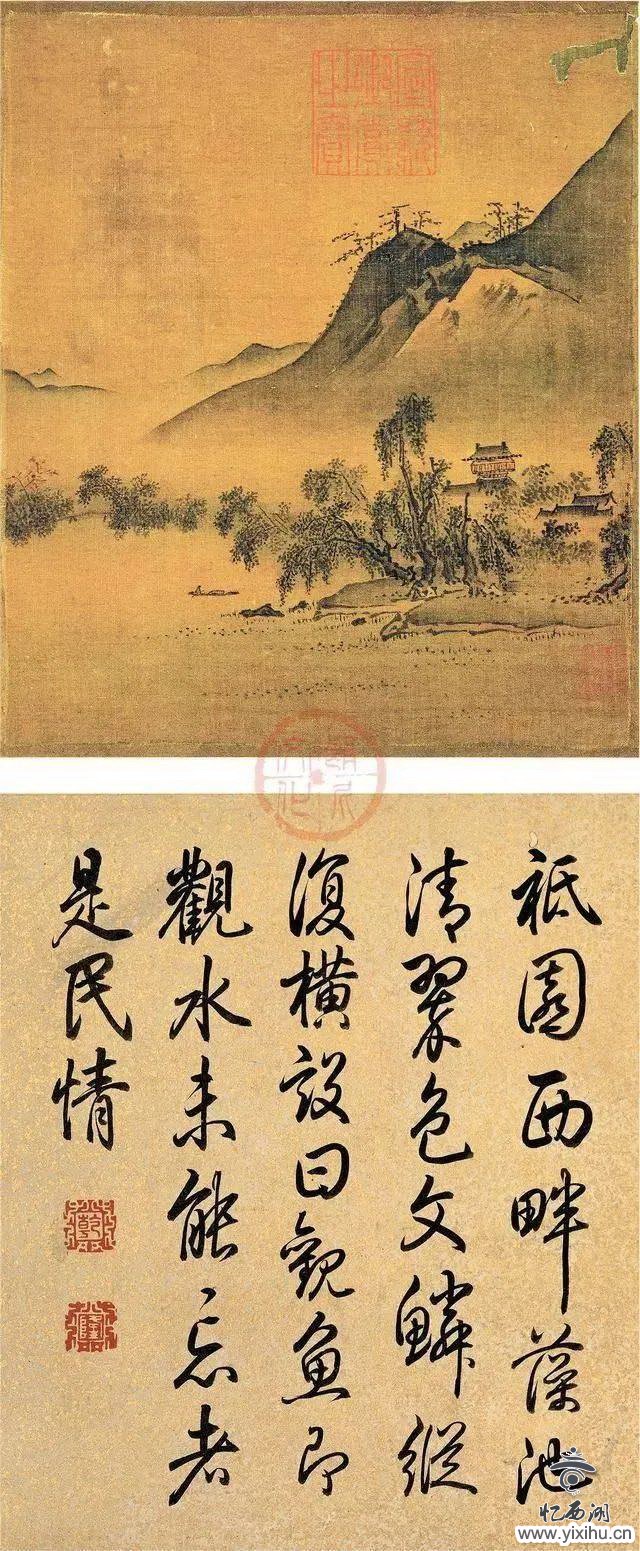 祇園西畔藻池
清翠色文鱗縱
復橫設曰觀魚即
觀水未能忘者
是民情
忆西湖
www.yixihu.cn